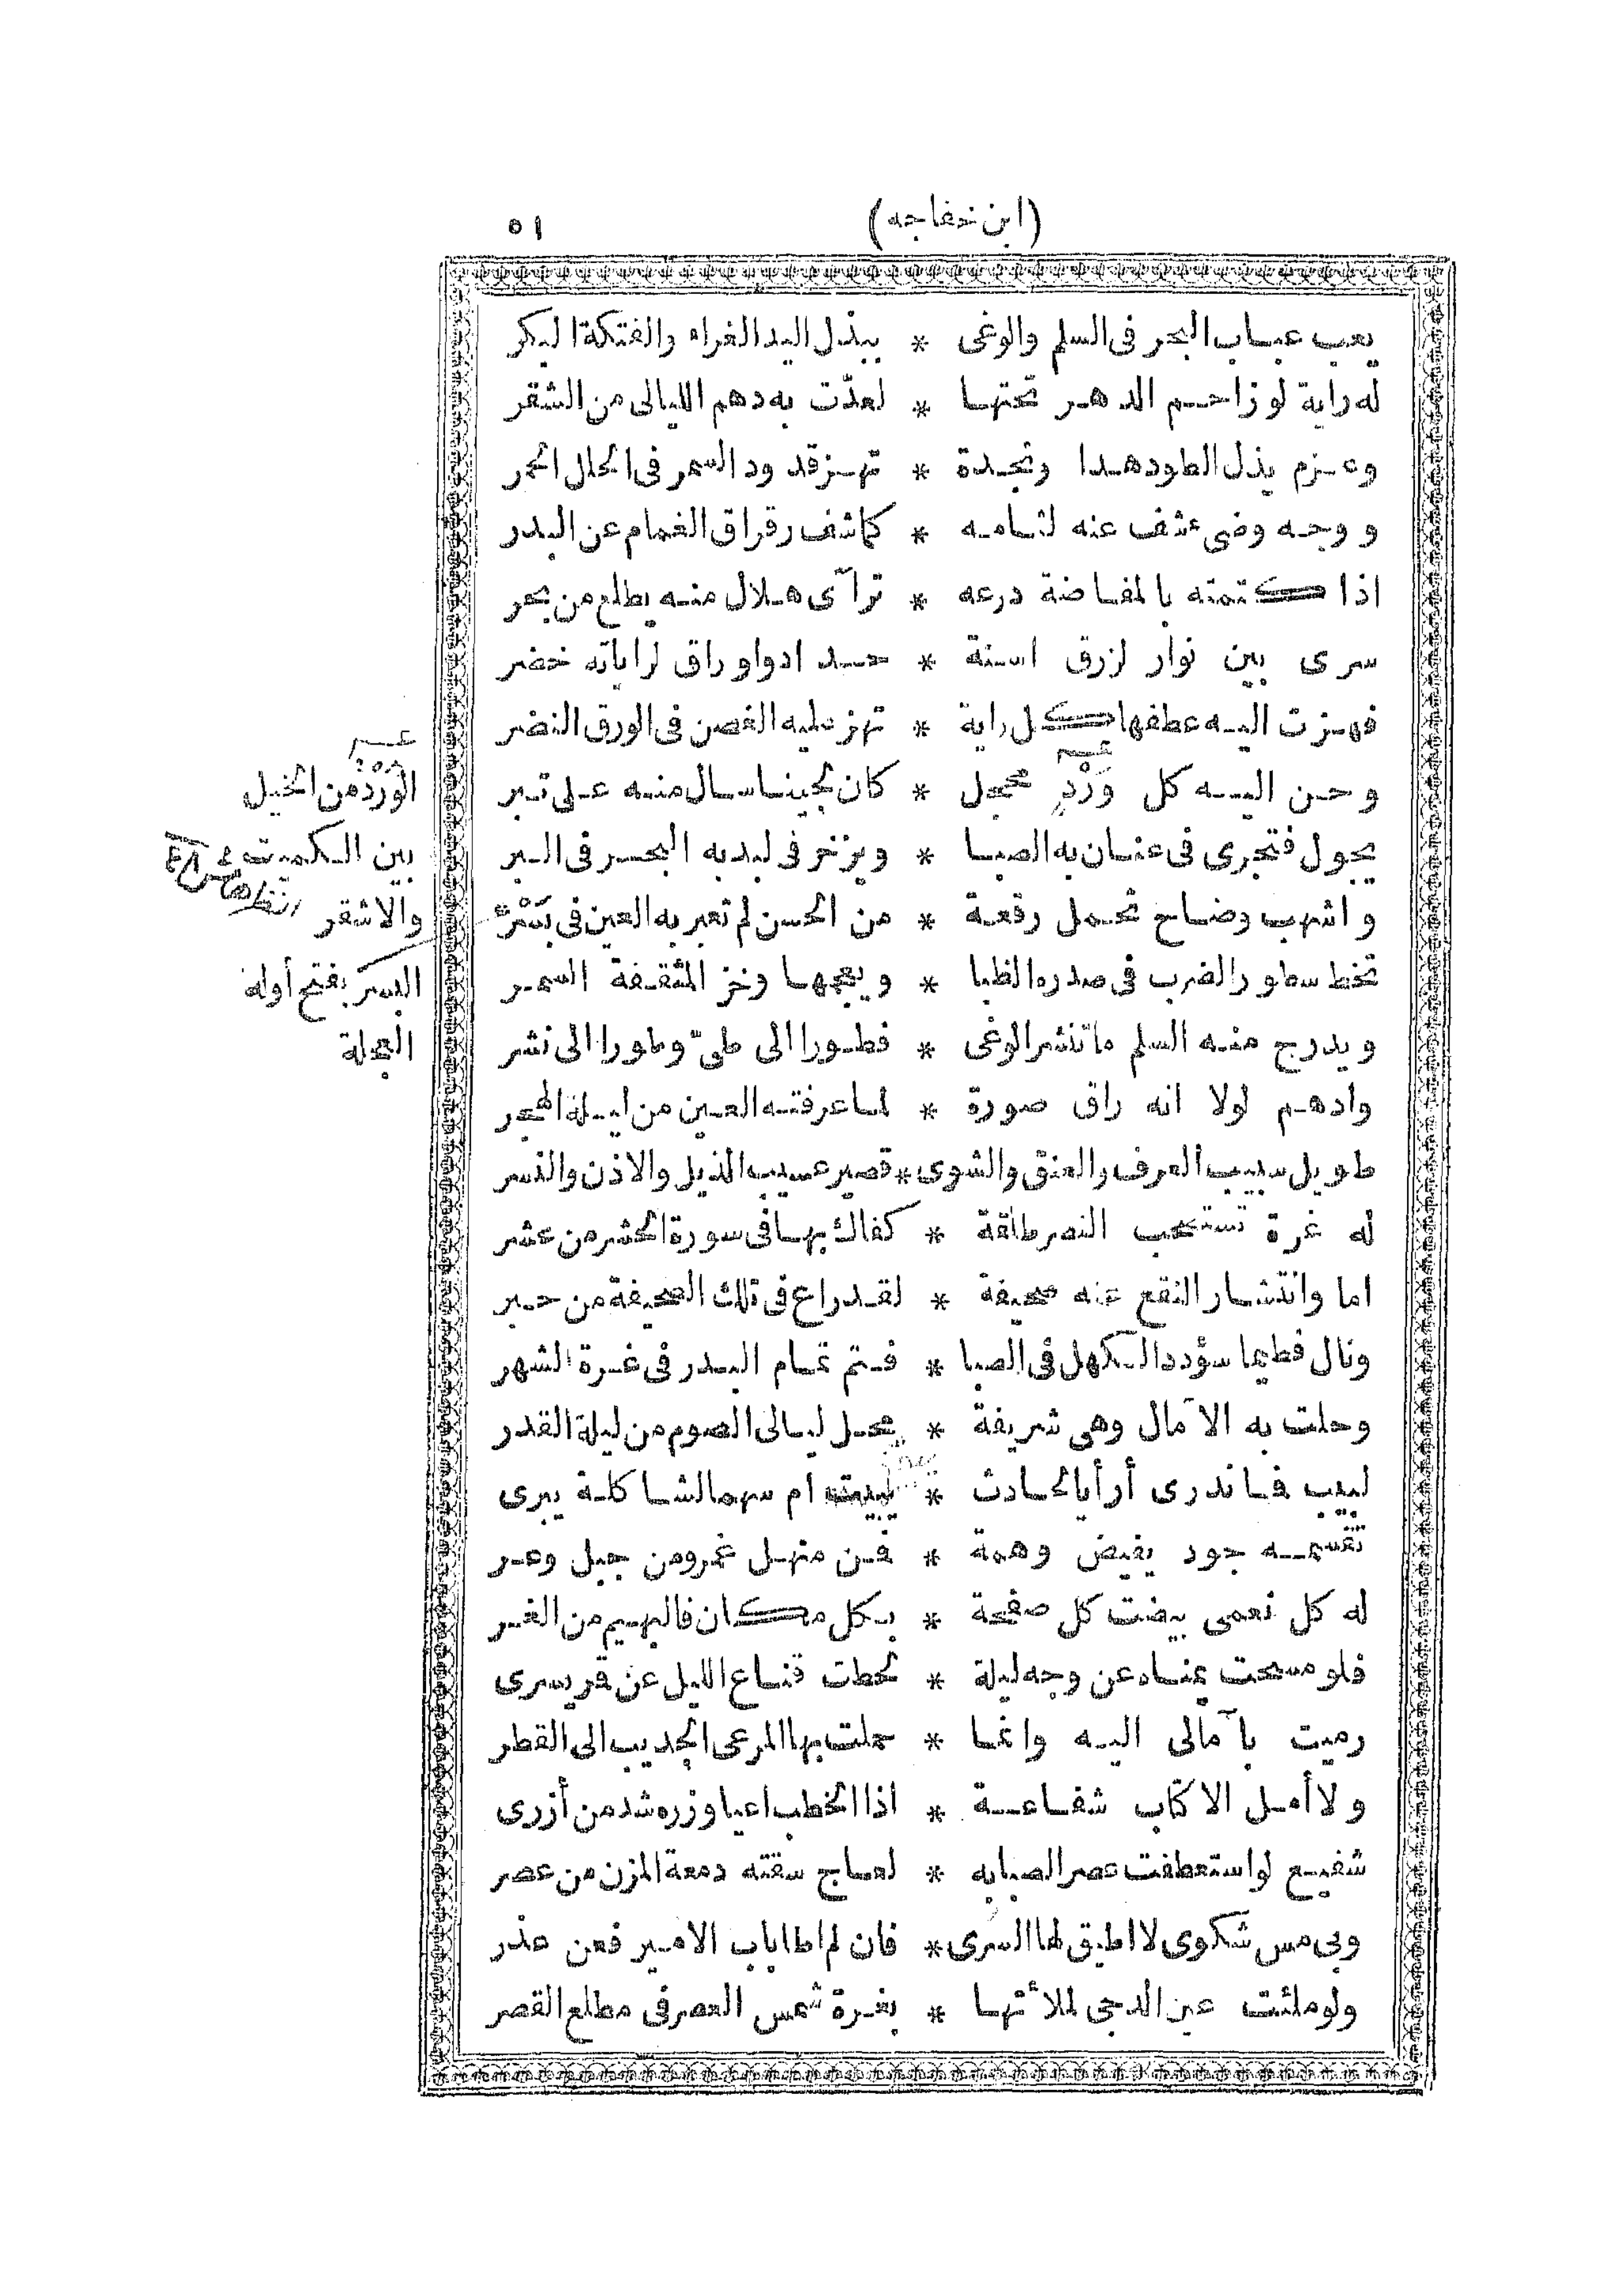 (ابن خفاجه) ٥١
يعب عباب البحر فى السلم والوغى * ببذل اليد الغراء والفتكة البكر
له راية لو زاحم الدهر تحتها * لعدّت به دهم الليالى من الشقر
وعزم يذل الطود هدا ونجدة * تهز قدود السمر فى الحلل الحمر
ووجه وضىء شف عنه لثامه * كما شف رقراق الغمام عن البدر
اذا كتمته بالمفاضة درعه * تراآى هلال منه يطلع من بحر
سرى بين نوار لزرق اسنة * حداد واوراق لراياته خضر
فهزت اليه عطفها كل راية * تهز عليه الغصن فى الورق النضر
وحن اليه كل وَرْدٍ محجل * كان لجينا سال منه على تبر
يجول فتجرى فى عنان به الصبا * ويزخر فى لبد به البحر فى البر
واشهب وضاح تحمل رقعة * من الحسن لم تعبر به العين فى بَسْرٍ
تخط سطور الضرب فى صدره الظبا * ويعجمها وخز المثقفة السمر
ويدرج منه السلم ما تنشر الوغى * فطورا الى طىّ وطورا الى نشر
وادهم لولا انه راق صورة * لما عرفته العين من ليلة الهجر
طويل سبيب العرف والعنق والشوى * قصير عسيب الذيل والاذن والنسر
له غرة تستصحب النصر طلقة * كفاك بها فى سورة الحشر من عشر
اما وانتشار النقع عنه صحيفة * لقد راع فى تلك الصحيفة من حبر
ونال فطيما سؤدد الكهل فى الصبا * فتم تمام البدر فى غرة الشهر
وحلت به الآمال وهى شريفة * محل ليالى الصوم من ليلة القدر
لبيب فما ندرى أرأيا لحادث * يبيت ام سهما لشاكلة يبرى
تقسمه جود يفيض وهمة * فمن منهل غمر ومن جبل وعر
له كل نعمى بيضت كل صفحة * بكل مكان فالبهيم من الغر
فلو مسحت يمناه عن وجه ليلة * لحطت قناع الليل عن قمر يسرى
رميت بآمالى اليه وانما * حملت بها المرعى الجديب الى القطر
ولا أمل الا كتاب شفاعة * اذا الخطب اعيا وزره شد من أزرى
شفيع لو استعطفت عصر الصبا به * لعاج سقته دمعة المزن من عصر
وبى مس شكوى لا اطيق لها السرى * فان لم اطا باب الامير فعن عذر
ولو ملئت عين الدجى لملأتها * بغرة شمس العصر فى مطلع القصر
الوَرْدُ من الخيل
بين الكميت
والاشقر
البسر بفتح أوله
العجلة